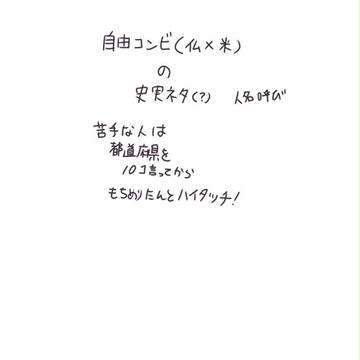 自由コンビ(仏×米)
の
史実ネタ(?) 人名呼び
苦手な人は
都道府県を
10コ言ってから
もちめりたんとハイタッチ!